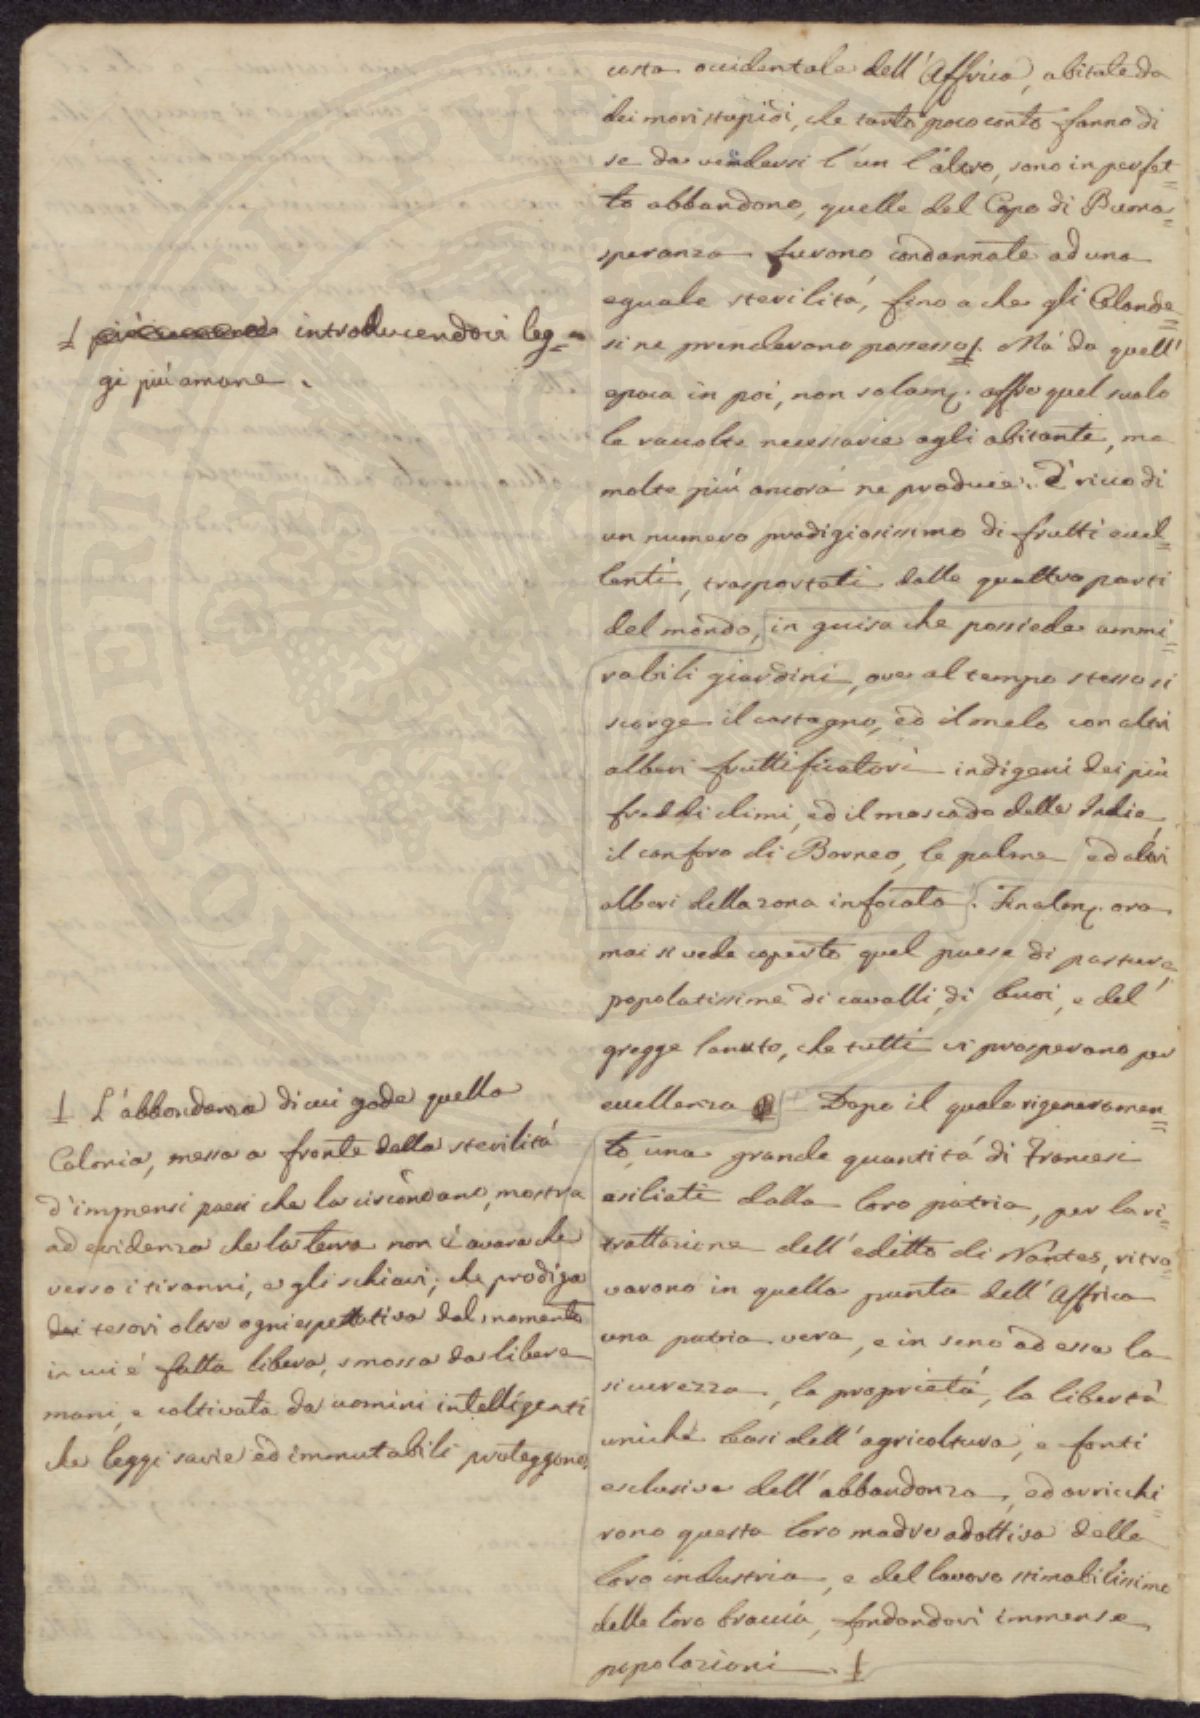 costa occidentale dell'Affrica, abitate da
dei mori stupidi, che tanto poco conto fanno di
se da vendersi l'un l'altro, sono in perfet=
to abbandono, quelle del Capo di Buona=
speranza furono condannate ad una
eguale sterilità, fino a che gli Olande=
si ne prenderono possesso. Ma da quell'
epoca in poi, non solam. offre quel suolo
le raccolte necessarie agli abitanti, ma
molte più ancora ne produce. È ricco di
un numero prodigiosissimo di frutti eccel=
lenti, trasportati dalle quattro parti
del mondo, in guisa che possiede ammi=
rabili giardini, ove al tempo stesso si
scorge il castagno, ed il melo con altri
alberi fruttificatori indigeni dei più
freddi climi, ed il moscado delle Indie,
il canforo di Borneo, le palme ed altri
alberi della zona infocata. Finalm. ora
mai si vede coperto quel paese di pasture,
popolatissime di cavalli, di buoi, e del
gregge lanuto, che tutti vi prosperano per
eccellenza Dopo il quale rigeneramen=
to, una grande quantità di Francesi
esiliati dalla loro patria, per la ri=
trattazione dell'editto di Nantes, ritro=
varono in quella punta dell'Affrica
una patria vera, e in seno ad essa la
sicurezza, la proprietà, la libertà
uniche basi dell'agricoltura, e fonti
esclusive dell'abbondanza, ed arricchi=
rono questa loro madre adottiva della
loro industria, e del lavoro stimabilissimo
delle loro braccia, fondandovi immense
popolazioni.
introducendovi leg=
gi più umane.
L'abbondanza di cui gode quella
Colonia, messa a fronte della sterilità
d'immensi paesi che la circondano, mostra
ad evidenza che la terra non è avara che
verso i tiranni, e gli schiavi; che prodiga
dei tesori oltre ogni espettativa dal momento
in cui è fatta libera, smossa da libere
mani, e coltivata da uomini intelligenti
che leggi savie ed immutabili proteggono.